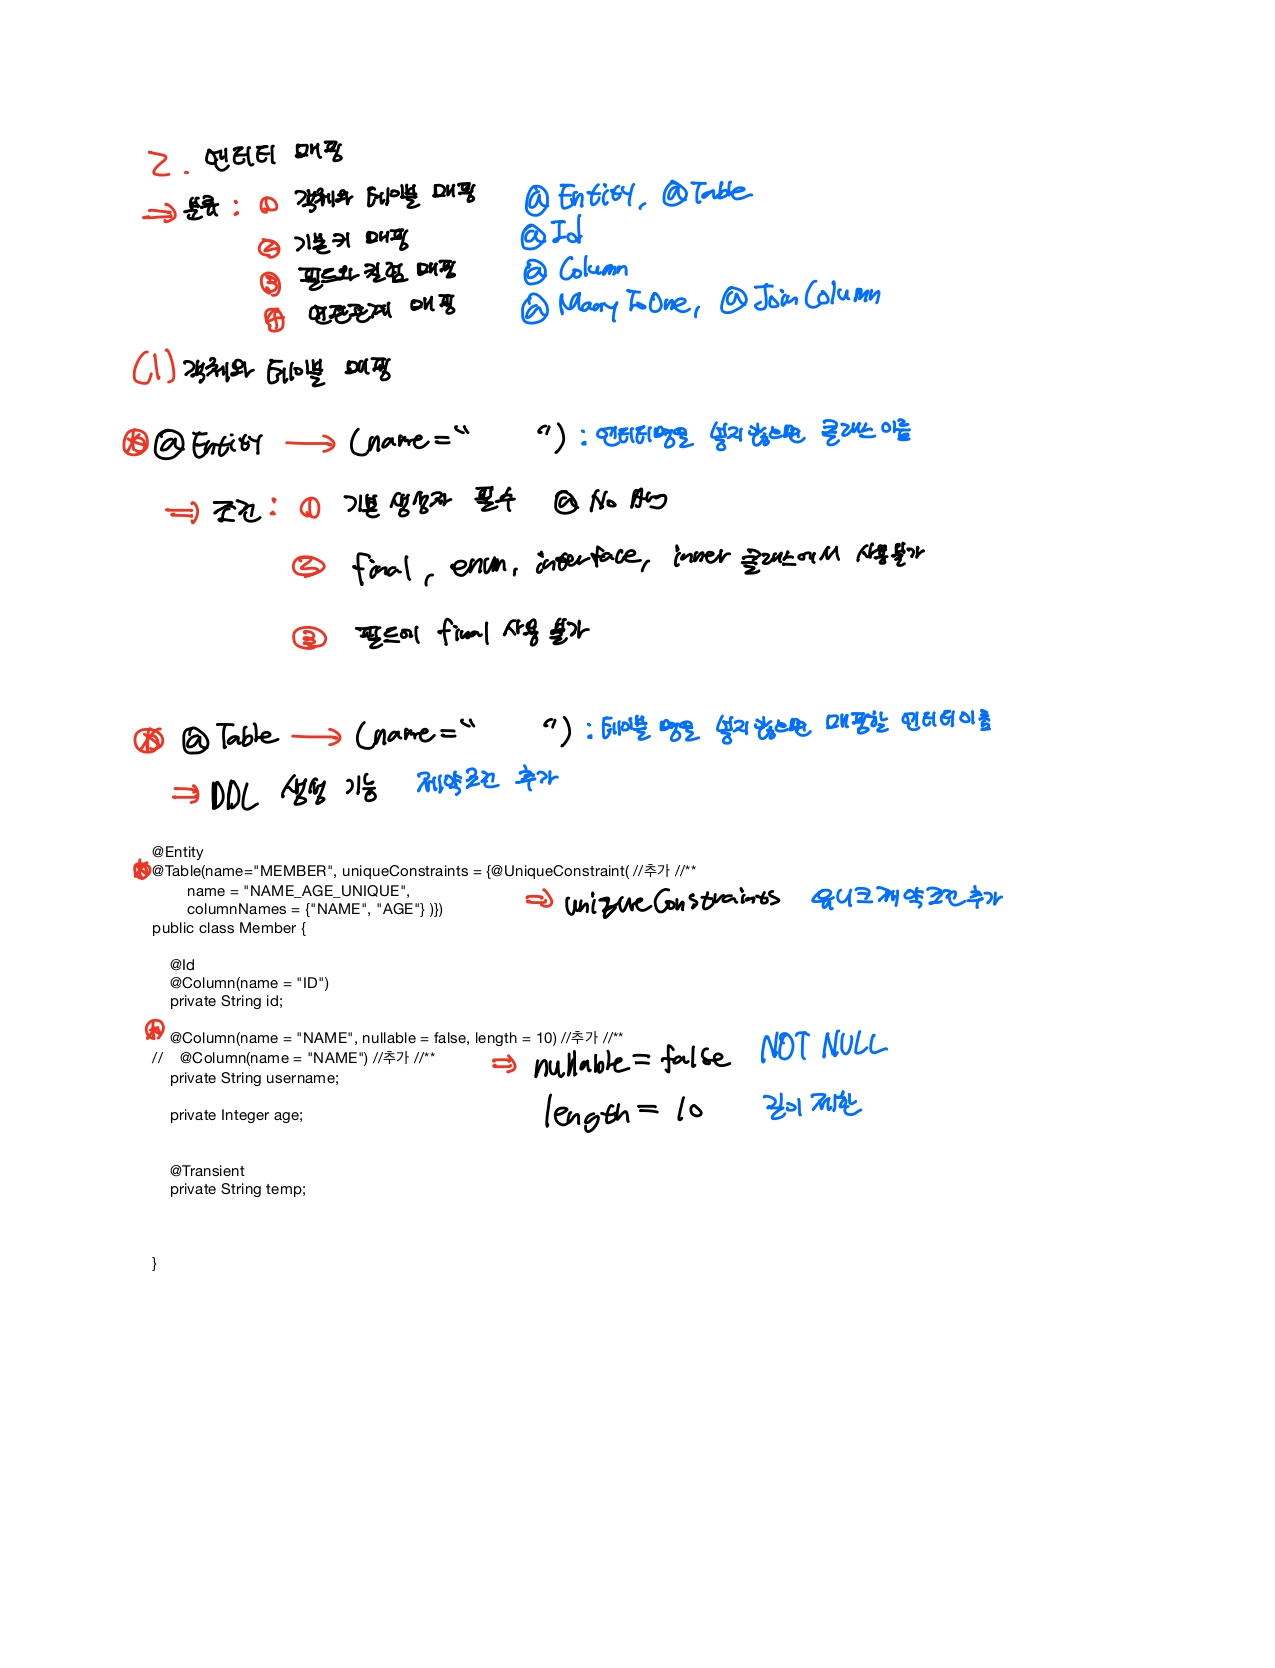 2. 엔터티 매핑
⇒ 분류 : ① 객체와 테이블 매핑 @Entity, @Table
② 기본키 매핑 @Id
③ 필드와 컬럼 매핑 @Column
④ 연관관계 매핑 @ManyToOne, @JoinColumn
(1) 객체와 테이블 매핑
@Entity → (name=" ") : 엔터티명을 넣지 않으면 클래스 이름
⇒ 조건 : ① 기본 생성자 필수 @No Arg
② final, enum, interface, inner 클래스에서 사용불가
③ 필드에 final 사용 불가
@Table → (name=" ") : 테이블 명을 넣지 않으면 매핑할 엔터티이름
⇒ DDL 생성 기능 제약조건 추가
@Entity
@Table(name="MEMBER", uniqueConstraints = {@UniqueConstraint( //추가 //**
name = "NAME_AGE_UNIQUE",
columnNames = {"NAME", "AGE"} )})
⇒ uniqueConstraints 유니크 제약조건 추가
public class Member {
@Id
@Column(name = "ID")
private String id;
@Column(name = "NAME", nullable = false, length = 10) //추가 //**
// @Column(name = "NAME") //추가 //**
⇒ nullable = false NOT NULL
private String username;
length = 10 길이 제한
private Integer age;
@Transient
private String temp;
}